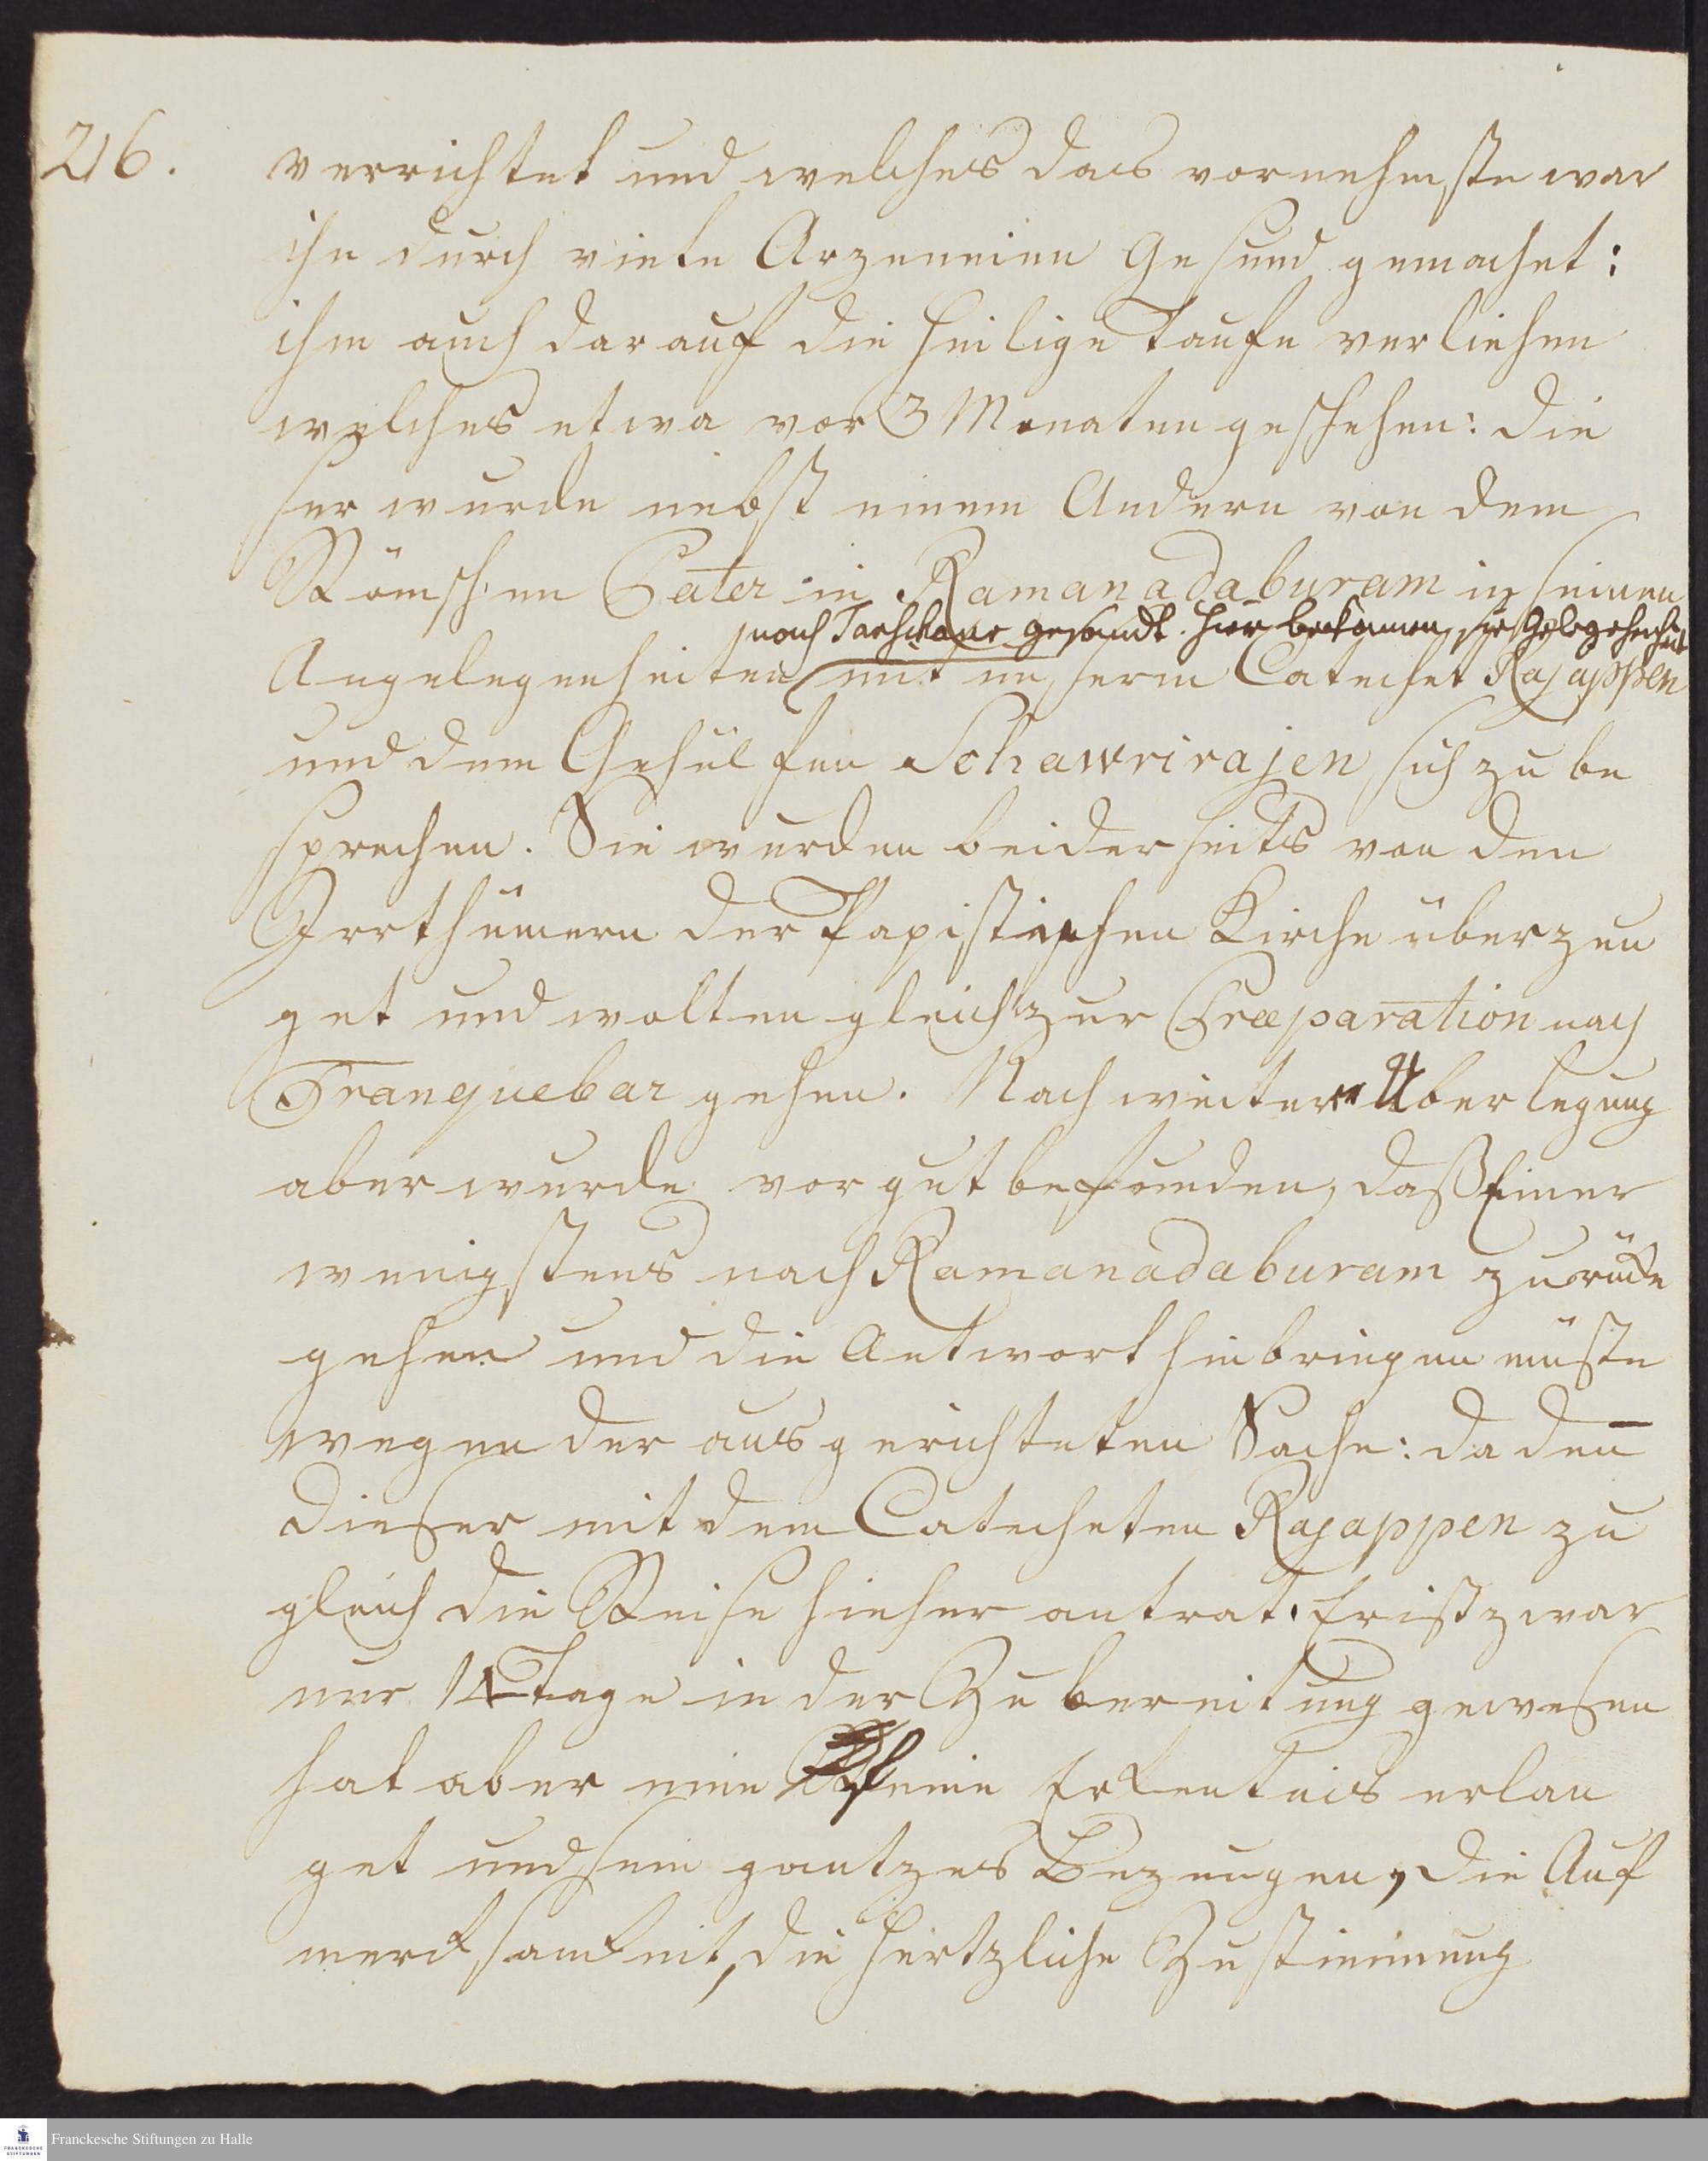 216.
verrichtet und welches das vornehmste war
ihn durch viele Arzeneien Gesund gemachet:
ihm auch darauf die heilige Taufe verliehen
welches etwa vor 3 Monaten geschehen: die
ser wurde nebst einem Andern von dem
Römschen Pater in Ramanadaburam in seinen
nach Tanschaur gesandt. hier bekamen sie Gelegenheit
Angelegenheiten mit unserm Catechet Rajappen
und dem Gehülfen Schawrirajen sich zu be
sprechen. Sie wurden beiderseits von den
Irrthümern der Papistischen Kirche überzeu
get und wolten gleich zur Præparation nach
Tranquebar gehen. Nach weiterer Überlegung
aber wurde vor gut befunden, daß Einer
wenigstens nach Ramanadaburam zurücke
gehen und die Antwort hinbringen müste
wegen der ausgerichteten Sache: da den̄
dieser mit dem Catecheten Rajappen zu
gleich die Reise hieher antrat. Er ist zwar
nur 14 Tage in der Zubereitung gewesen
hat aber eine feine Erkentnis erlan
get und sein gantzes Bezeugen, die Auf
mercksamkeit, die hertzliche Zustimmung
Franckesche Stiftungen zu Halle
FRANCKESCHE
STIFTUNGEN